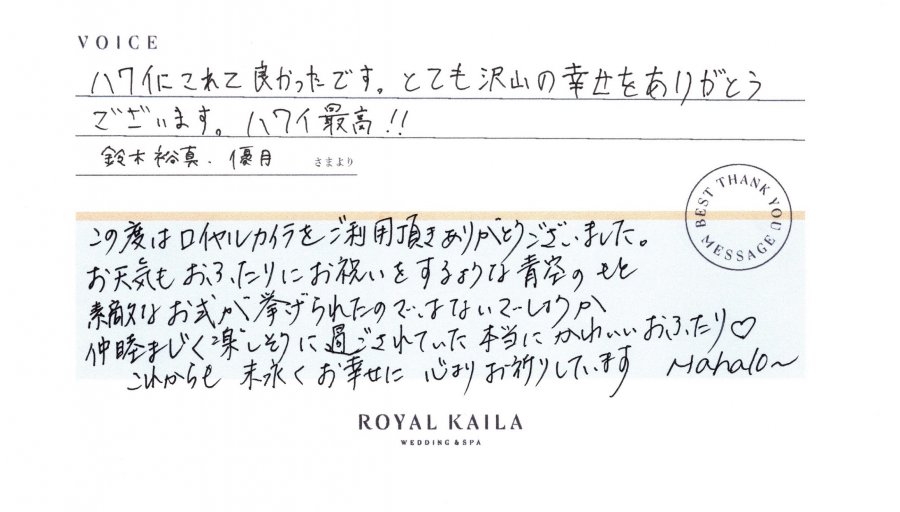 VOICE
ハワイにこれて良かったです。とても沢山の幸せをありがとう
ございます。ハワイ最高!!
鈴木裕真、優月 さまより
BEST THANK YOU MESSAGE
この度はロイヤルカイラをご利用頂きありがとうございました。
お天気もおふたりにお祝いをするような青空のもと
素敵なお式が挙げられたのではないでしょうか
仲睦まじく楽しそうに過ごされていた本当にかわいいおふたり♡
これからも末永くお幸せに心よりお祈りしています Mahalo~
ROYAL KAILA
WEDDING & SPA